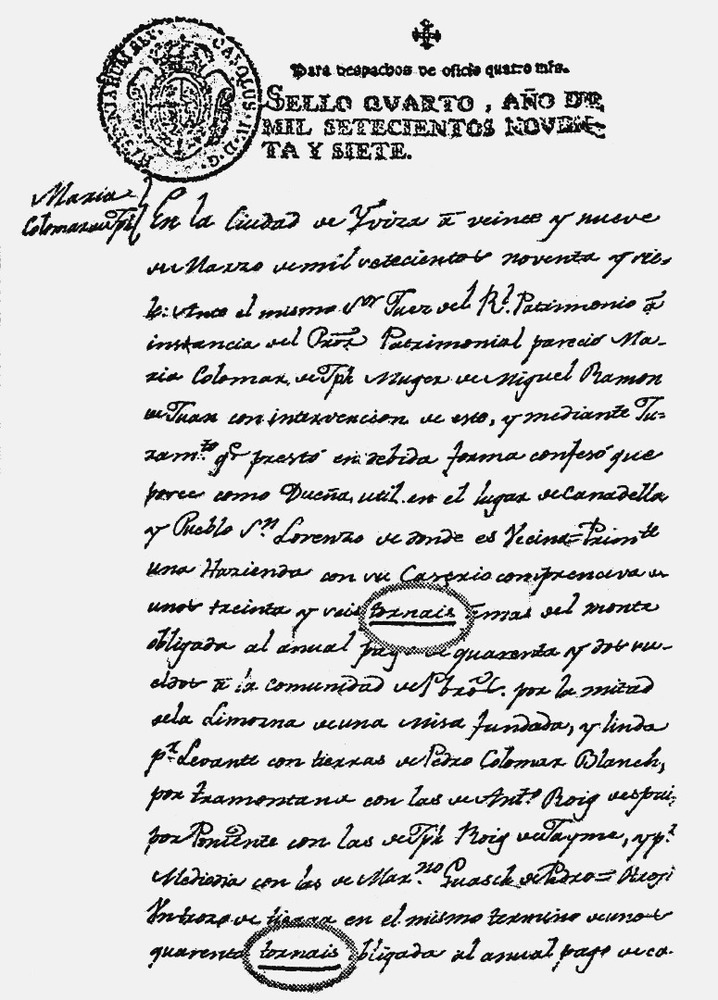 HISPANIARUM REX. CAROLUS. IV. D. G.
Para despachos de oficio quatro mrs.
SELLO QVARTO, AÑO DE
MIL SETECIENTOS NOVEN-
TA Y SIETE.
Maria
Colomar de Jph
En la Ciudad de Yviza â veinte y nueve
de Marzo de mil setecientos noventa y sie-
te: Ante el mismo Sor Juez del Rl. Patrimonio â
instancia del Pror. Patrimonial pareció Ma-
ria Colomar de Jph Muger de Miguel Ramon
de Juan con intervencion de este, y mediante Ju-
ramto. qe prestó en debida forma confesó que
posee como Dueña util en el lugar de Canadella
y Pueblo Sn. Lorenzo de donde es Vecina=
una Hazienda con su Caserio comprensiva de
unos treinta y seis tornais de mas del monte
obligada al anual pago de quarenta y dos su-
eldos â la comunidad de Pbros. por la mitad
dela Limosna de una Misa fundada, y linda
pr. Levante con tierras de Pedro Colomar Blanch,
por tramontana con las de Anto. Roig
por Poniente con las de Jph Roig de Jayme, y pr.
Mediodia con las de Marno Guasch de Pedro=
Un trozo de tierra en el mismo termino de unos
quarenta tornais obligada al anual pago de ca-